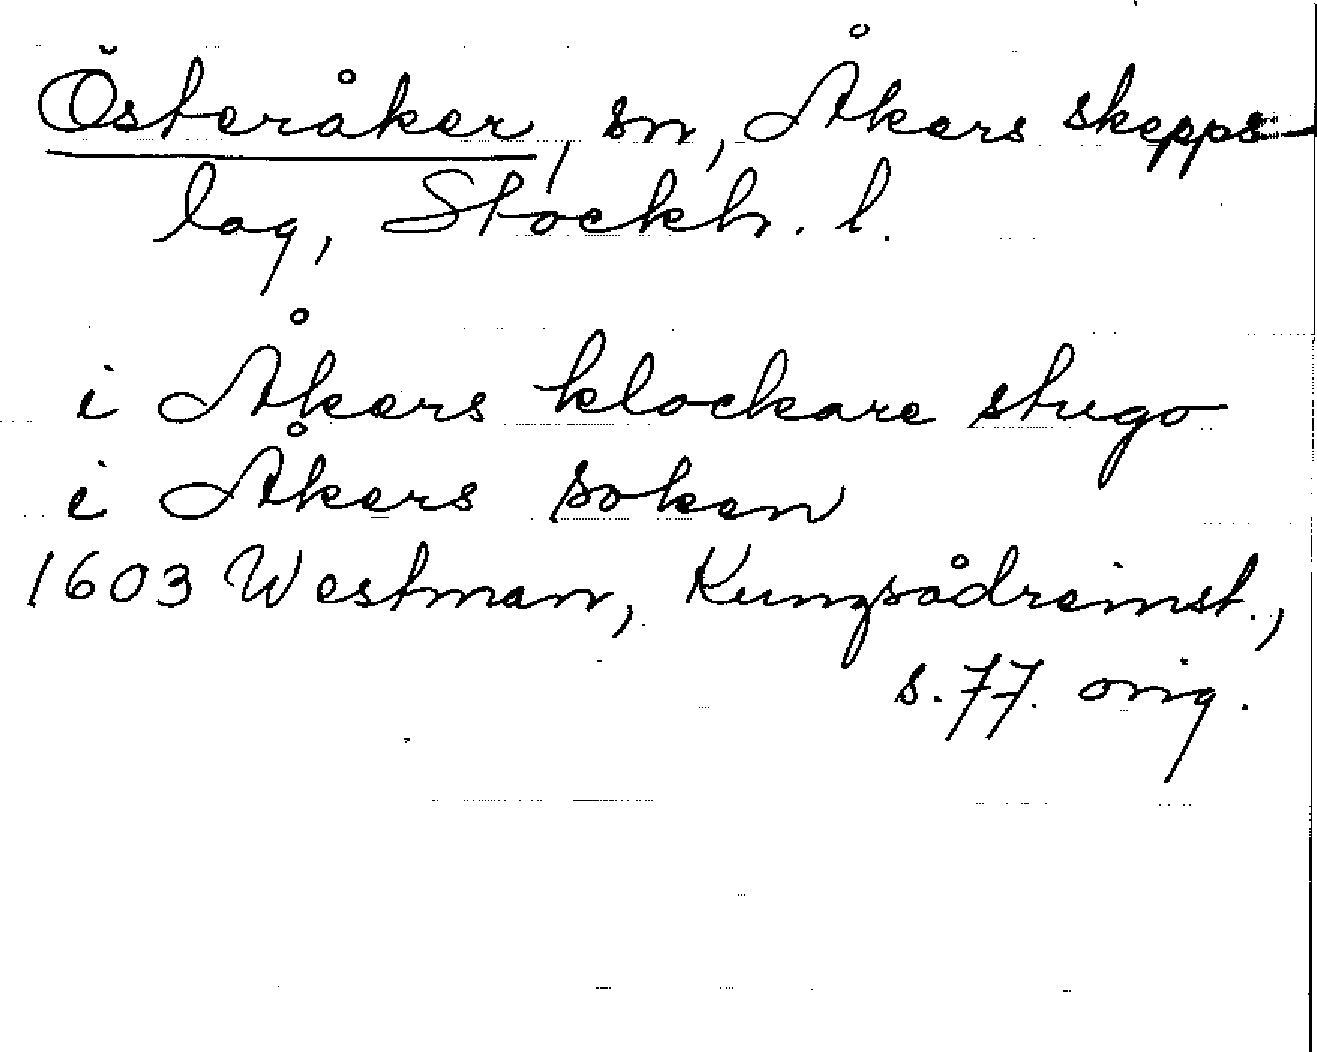 Österåker, sn, Åkers skepps-
lag, Stockh. l.
i Åkers klockare stugo
i Åkers soken
1603 Westman, Kungsådreinst.,
s. 77. orig.